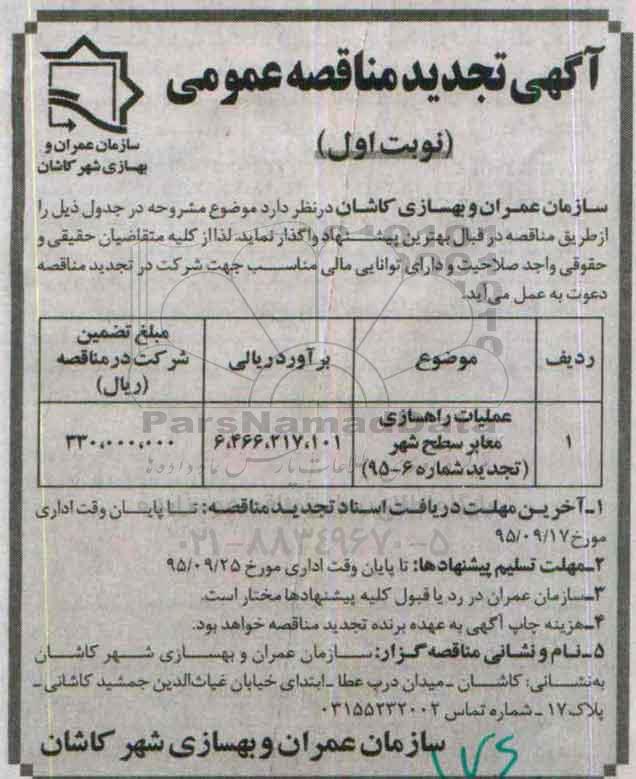 آگهی تجدید مناقصه عمومی
(نوبت اول)
سازمان عمران و
بهسازی شهر کاشان
سازمان عمران و بهسازی کاشان درنظر دارد موضوع مشروحه در جدول ذیل را
ازطریق مناقصه در قبال بهترین پیشنهاد واگذار نماید. لذا از کلیه متقاضیان حقیقی و
حقوقی واجد صلاحیت و دارای توانایی مالی مناسب جهت شرکت در تجدید مناقصه
دعوت به عمل می‌آید.
ردیف
موضوع
برآورد ریالی
مبلغ تضمین
شرکت در مناقصه
(ریال)
۱
عملیات راهسازی
معابر سطح شهر
(تجدید شماره ۶-۹۵)
۶،۴۶۶،۲۱۷،۱۰۱
۳۳۰،۰۰۰،۰۰۰
ParsNamadData
۰۲۱-۸۸۳۴۹۶۷۰-۵
۱ـ آخرین مهلت دریافت اسناد تجدید مناقصه: تا پایان وقت اداری
مورخ ۹۵/۰۹/۱۷
۲ـ مهلت تسلیم پیشنهادها: تا پایان وقت اداری مورخ ۹۵/۰۹/۲۵
۳ـ سازمان عمران در رد یا قبول کلیه پیشنهادها مختار است.
۴ـ هزینه چاپ آگهی به عهده برنده تجدید مناقصه خواهد بود.
۵ـ نام و نشانی مناقصه گزار: سازمان عمران و بهسازی شهر کاشان
به نشانی: کاشان ـ میدان درب عطا ـ ابتدای خیابان غیاث‌الدین جمشید کاشانی ـ
پلاک ۱۷ ـ شماره تماس ۰۳۱۵۵۲۳۲۰۰۲
سازمان عمران و بهسازی شهر کاشان